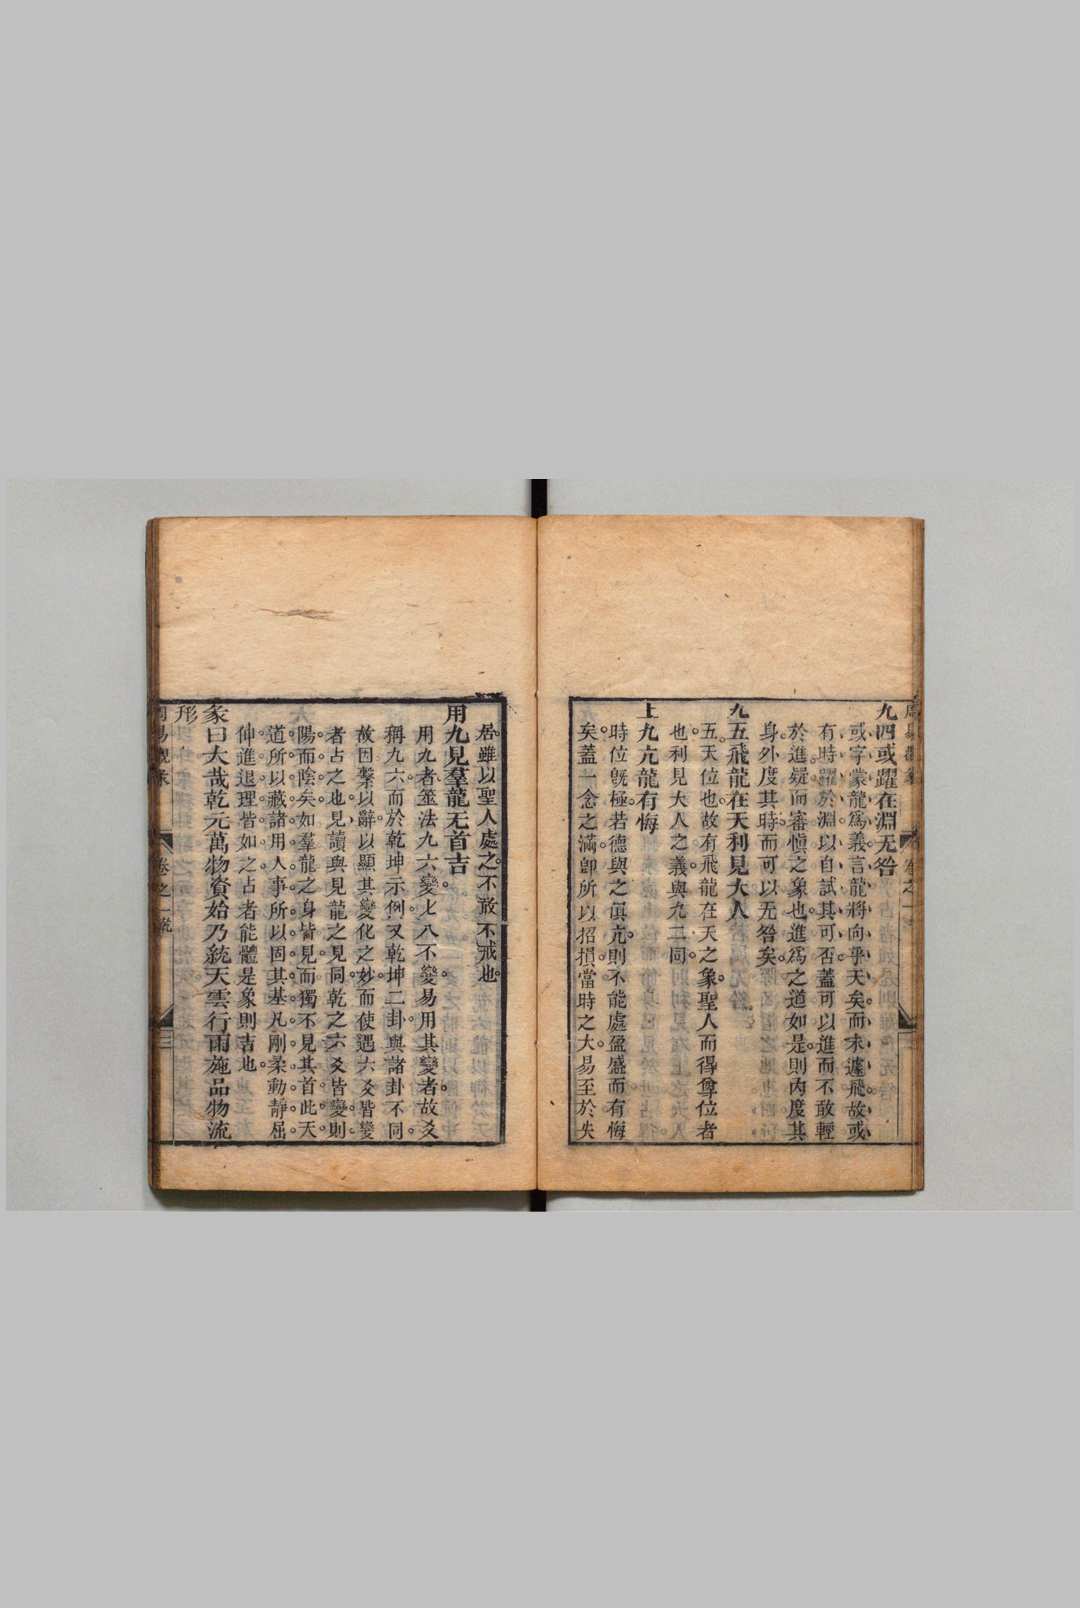 九四或躍在淵无咎
或字蒙龍爲義言龍將向乎天矣而未遽飛故或
有時躍於淵以自試其可否蓋可以進而不敢輕
於進疑而審慎之象也進爲之道如是則內度其
身外度其時而可以无咎矣
九五飛龍在天利見大人
五天位也故有飛龍在天之象聖人而得尊位者
也利見大人之義與九二同
上九亢龍有悔
時位旣極若德與之俱亢則不能處盈盛而有悔
矣蓋一念之滿卽所以招損當時之大易至於失
居雖以聖人處之不敢不戒也
用九見羣龍无首吉
用九者筮法九六變七八不變易用其變者故爻
稱九六而於乾坤示例又乾坤二卦與諸卦不同
故因繫以辭以顯其變化之妙而使遇六爻皆變
者占之也見讀與見龍之見同乾之六爻皆變則
陽而陰矣如羣龍之身皆見而獨不見其首此天
道所以藏諸用人事所以固其基凡剛柔動靜屈
伸進退理皆如之占者能體是象則吉也
彖曰大哉乾元萬物資始乃統天雲行雨施品物流
形
卷之一 三